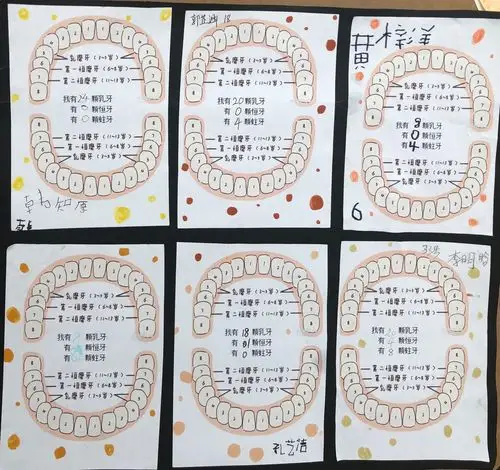 乳磨牙（2~3岁）
第一恒磨牙（6~8岁）
第二恒磨牙（11~13岁）
我有24颗乳牙
有0颗恒牙
有0颗蛀牙
第二恒磨牙（11~13岁）
第一恒磨牙（6~8岁）
乳磨牙（2~3岁）
知原
18
乳磨牙（2~3岁）
第一恒磨牙（6~8岁）
第二恒磨牙（11~13岁）
我有20颗乳牙
有0颗恒牙
有4颗蛀牙
第二恒磨牙（11~13岁）
第一恒磨牙（6~8岁）
乳磨牙（2~3岁）
黄梓洋
乳磨牙（2~3岁）
第一恒磨牙（6~8岁）
第二恒磨牙（11~13岁）
我有8颗乳牙
有0颗恒牙
有4颗蛀牙
第二恒磨牙（11~13岁）
第一恒磨牙（6~8岁）
乳磨牙（2~3岁）
6
乳磨牙（2~3岁）
第一恒磨牙（6~8岁）
第二恒磨牙（11~13岁）
我有 颗乳牙
有 颗恒牙
有 颗蛀牙
第二恒磨牙（11~13岁）
第一恒磨牙（6~8岁）
乳磨牙（2~3岁）
乳磨牙（2~3岁）
第一恒磨牙（6~8岁）
第二恒磨牙（11~13岁）
我有18颗乳牙
有 颗恒牙
有0颗蛀牙
第二恒磨牙（11~13岁）
第一恒磨牙（6~8岁）
乳磨牙（2~3岁）
孔艺洁
李明
乳磨牙（2~3岁）
第一恒磨牙（6~8岁）
第二恒磨牙（11~13岁）
我有20颗乳牙
有4颗恒牙
有8颗蛀牙
第二恒磨牙（11~13岁）
第一恒磨牙（6~8岁）
乳磨牙（2~3岁）